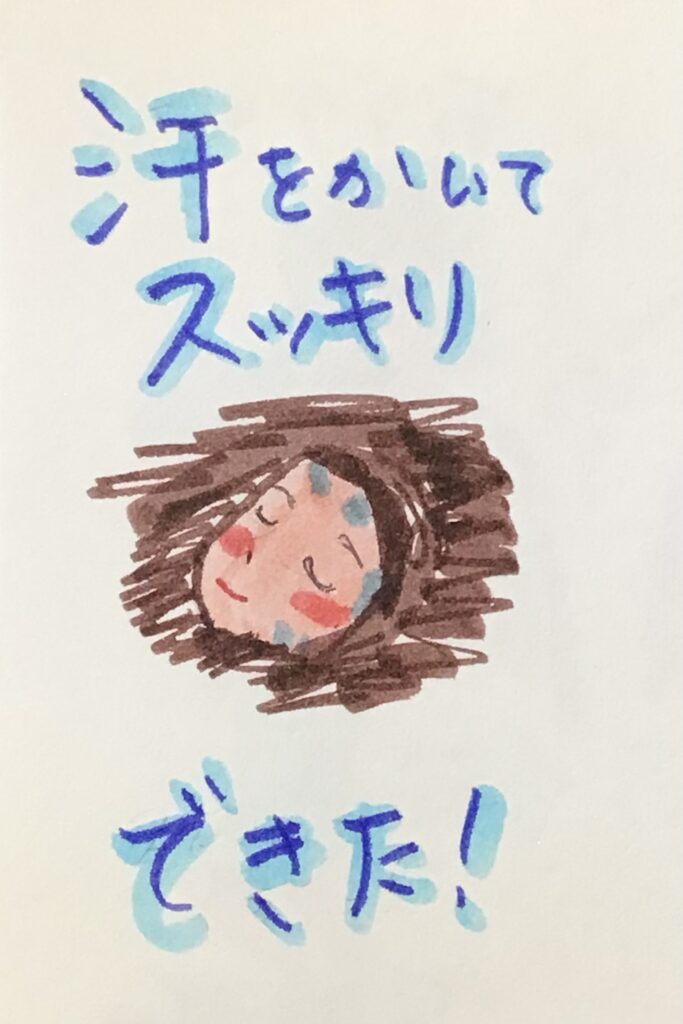 汗をかいて
スッキリ
できた!